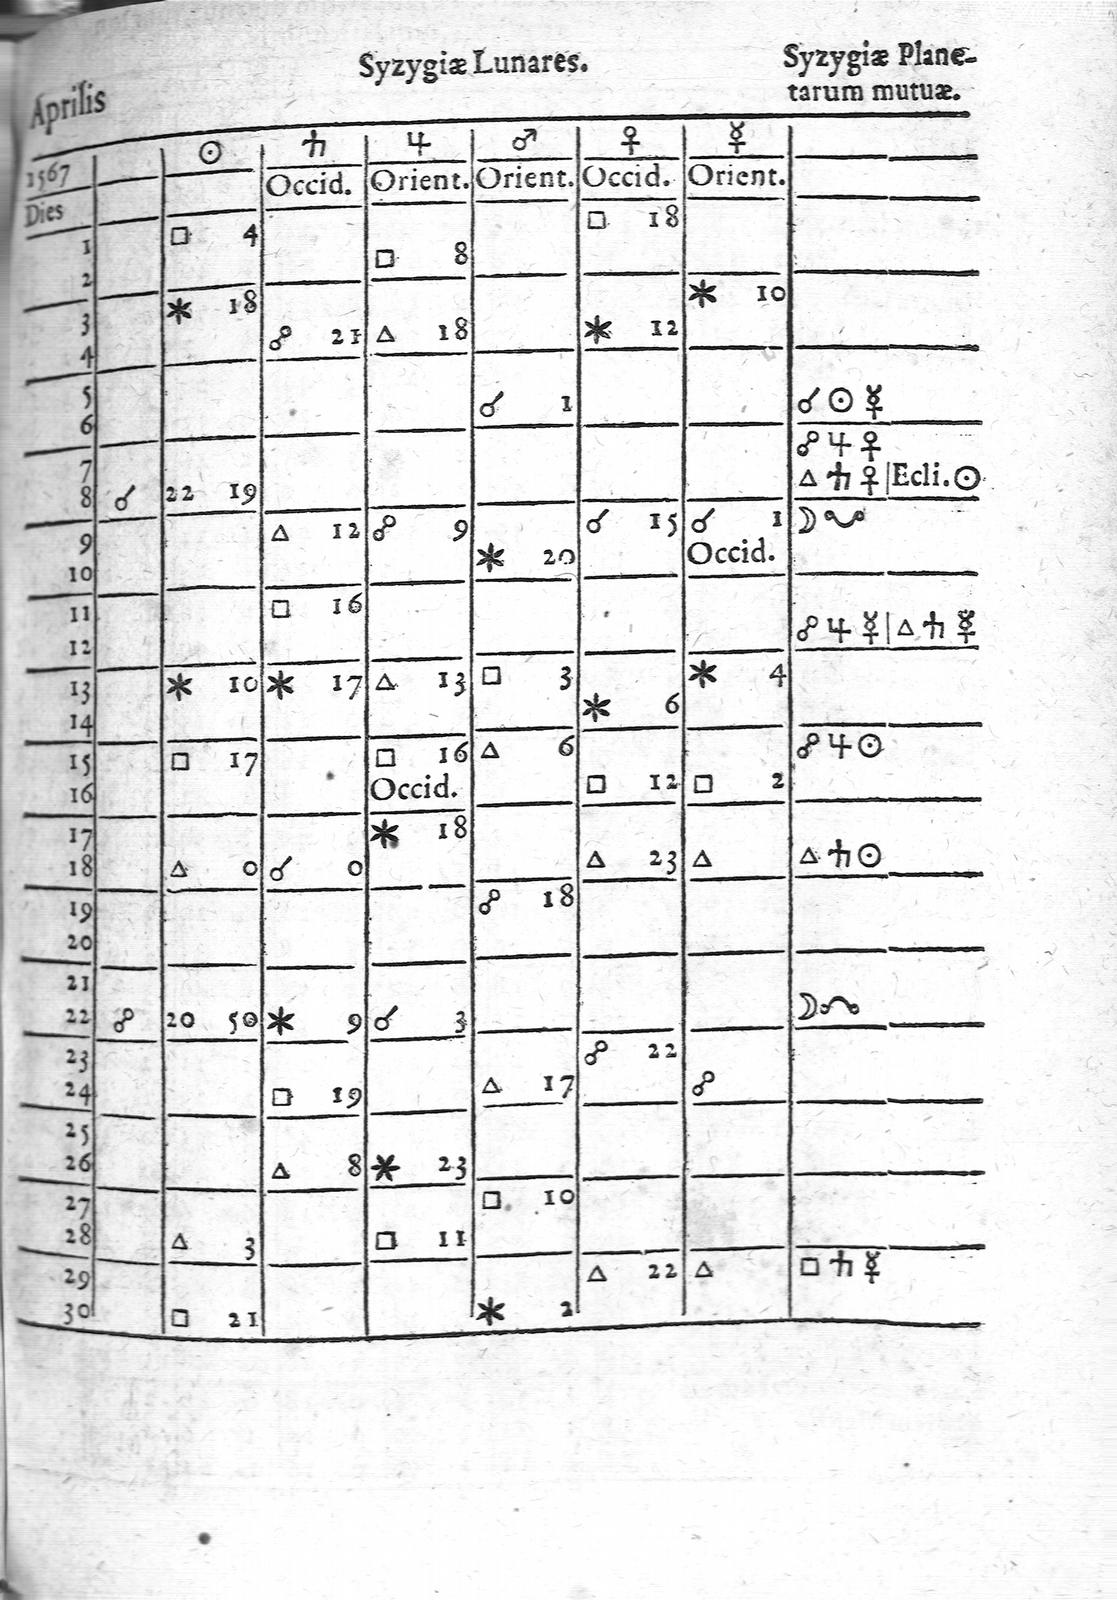 Aprilis Syzygiæ Lunares. Syzygiæ Plane-
tarum mutuæ.
1567 ☉ ♄ ♃ ♂ ♀ ☿
Occid. Orient. Orient. Occid. Orient.
Dies
1 □ 4 □ 8 □ 18
2
3 ⚹ 18 ⚹ 10
4 ☍ 21 △ 18 ⚹ 12
5 ☌ 1 ☌ ☉ ☿
6
7 ☍ ♃ ♀
8 ☌ 22 19 △ ♄ ♀ | Ecli. ☉
9 △ 12 ☍ 9 ☌ 15 ☌ 1 ☽ ☋
10 ⚹ 20 Occid.
11 □ 16
12 ☍ ♃ ☿ | △ ♄ ☿
13 ⚹ 10 ⚹ 17 △ 13 □ 3 ⚹ 4
14 ⚹ 6
15 □ 17 □ 16 △ 6 ☍ ♃ ☉
16 Occid. □ 12 □ 2
17 ⚹ 18
18 △ 0 ☌ 0 △ 23 △ △ ♄ ☉
19 ☍ 18
20
21
22 ☍ 20 50 ⚹ 9 ☌ 3 ☽ ☊
23 ☍ 22
24 □ 19 △ 17 ☍
25
26 △ 8 ⚹ 23
27 □ 10
28 △ 3 □ 11
29 △ 22 △ □ ♄ ☿
30 □ 21 ⚹ 2